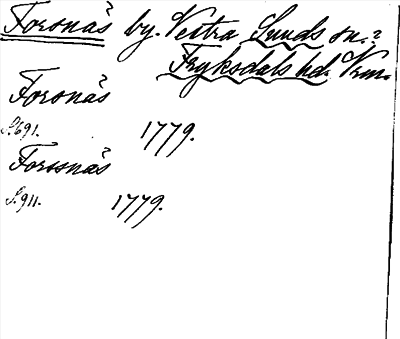 Forsnäs by. Vestra Sunds sn.?
Fryksdals hd. Vrm.
Forsnäs
S. 691. 1779.
Forssnäs
S. 911. 1779.